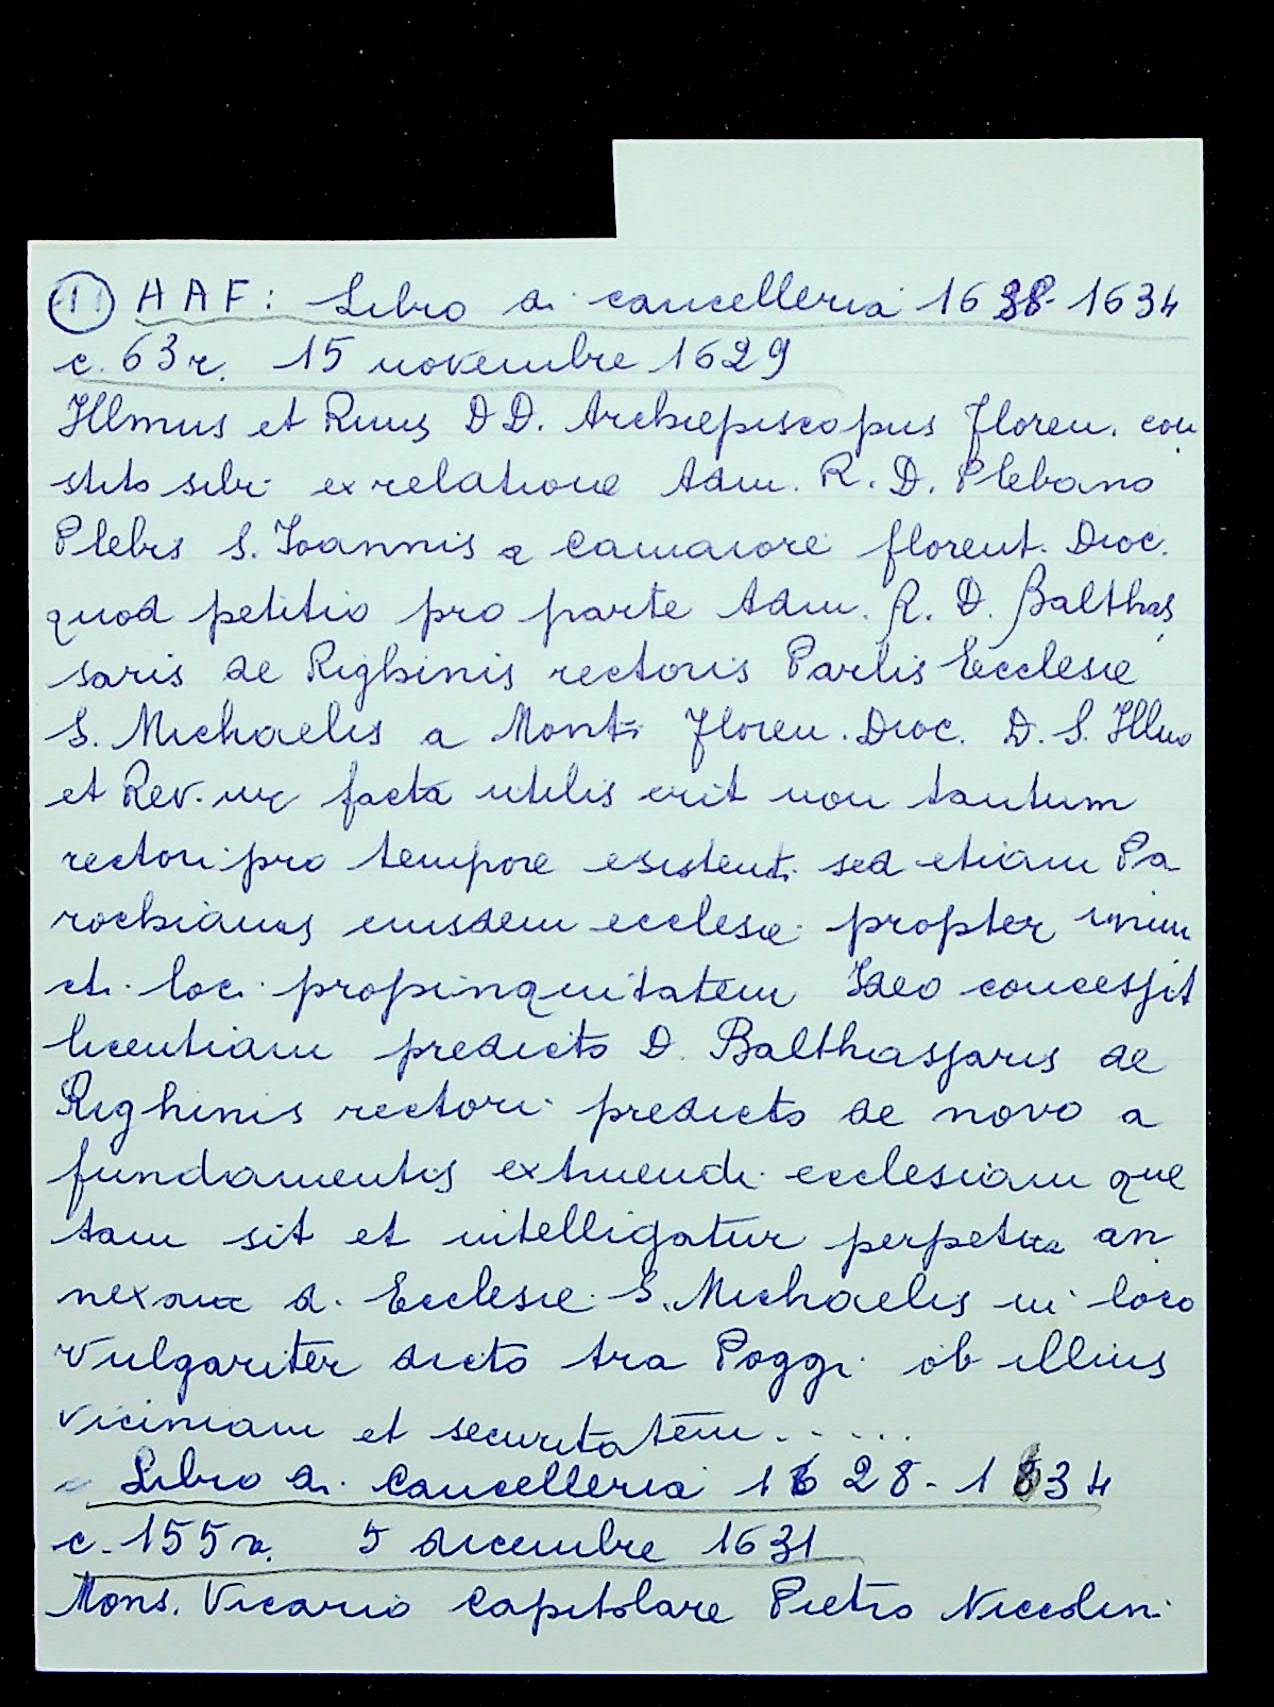 (1) HAF: Libro di cancelleria 1628-1634
c. 63r. 15 novembre 1629
Illmus et Rmus DD. Archiepiscopus Floren. con
stito sibi ex relatione Adm. R. D. Plebano
Plebis S. Ioannis a Camaiore florent. Dioc.
quod petitio pro parte Adm. R. D. Balthas
saris de Righinis rectoris Parlis Ecclesie
S. Michaelis a Monti Floren. Dioc. D. S. Illmo
et Rev. facta utilis erit non tantum
rectori pro tempore esistenti sed etiam Pa
rochianis eiusdem ecclesie propter
et loci propinquitatem Ideo concessit
licentiam predicto D. Balthassaris de
Righinis rectori predicto de novo a
fundamentis extruendi ecclesiam que
tam sit et intelligatur perpetua an
nexam d. Ecclesie S. Michaelis in loco
vulgariter dicto tra Poggi ob illius
viciniam et securitatem.....
Libro di Cancelleria 1628-1634
c. 155r. 5 dicembre 1631
Mons. Vicario Capitolare Pietro Niccolini